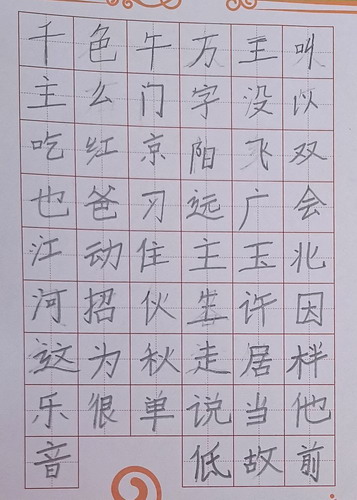 千色午万王叫
主么门字没以
吃红京阳飞双
也爸习远广会
江动住主玉北
河招伙生许因
这为秋走居样
乐很单说当他
音低故前